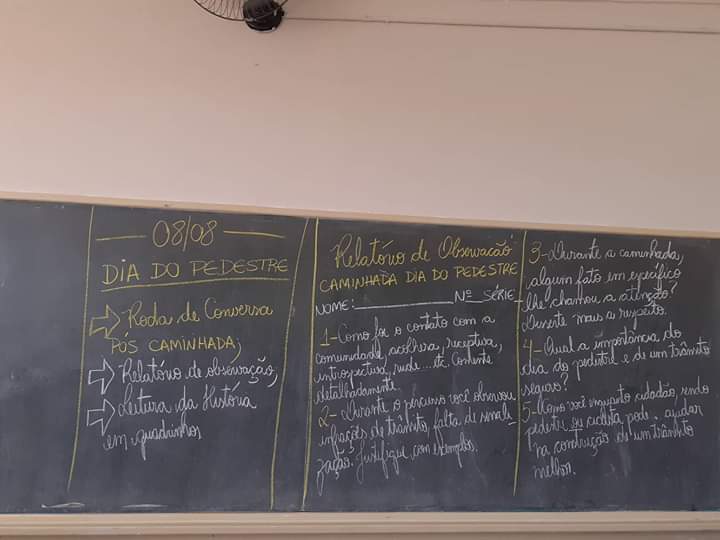 08/08
DIA DO PEDESTRE
Roda de Conversa
PÓS CAMINHADA;
Relatório de observação;
Leitura da História
em quadrinhos
Relatório de Observação
CAMINHADA DIA DO PEDESTRE
NOME: Nº SÉRIE
1-Como foi o contato com a
comunidade, acolhida, receptiva,
introspectiva, rude...etc. Comente
detalhadamente.
2- Durante o percurso você observou
infrações de trânsito, falta de sinali-
zação. Justifique com exemplos.
3-Durante a caminhada,
algum fato em específico
lhe chamou a atenção?
mais a respeito.
4-Qual a importância do
dia do pedestre e de um trânsito
seguro?
5-Como você enquanto cidadão, sendo
pedestre ou ciclista pode ajudar
na construção de um trânsito
melhor.